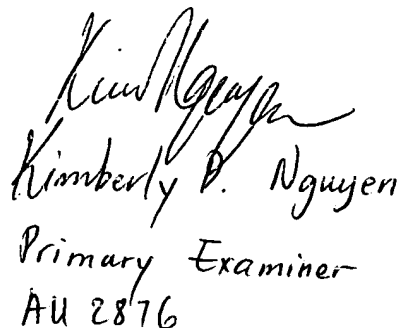 Kim Nguyen
Kimberly D. Nguyen
Primary Examiner
AU 2876